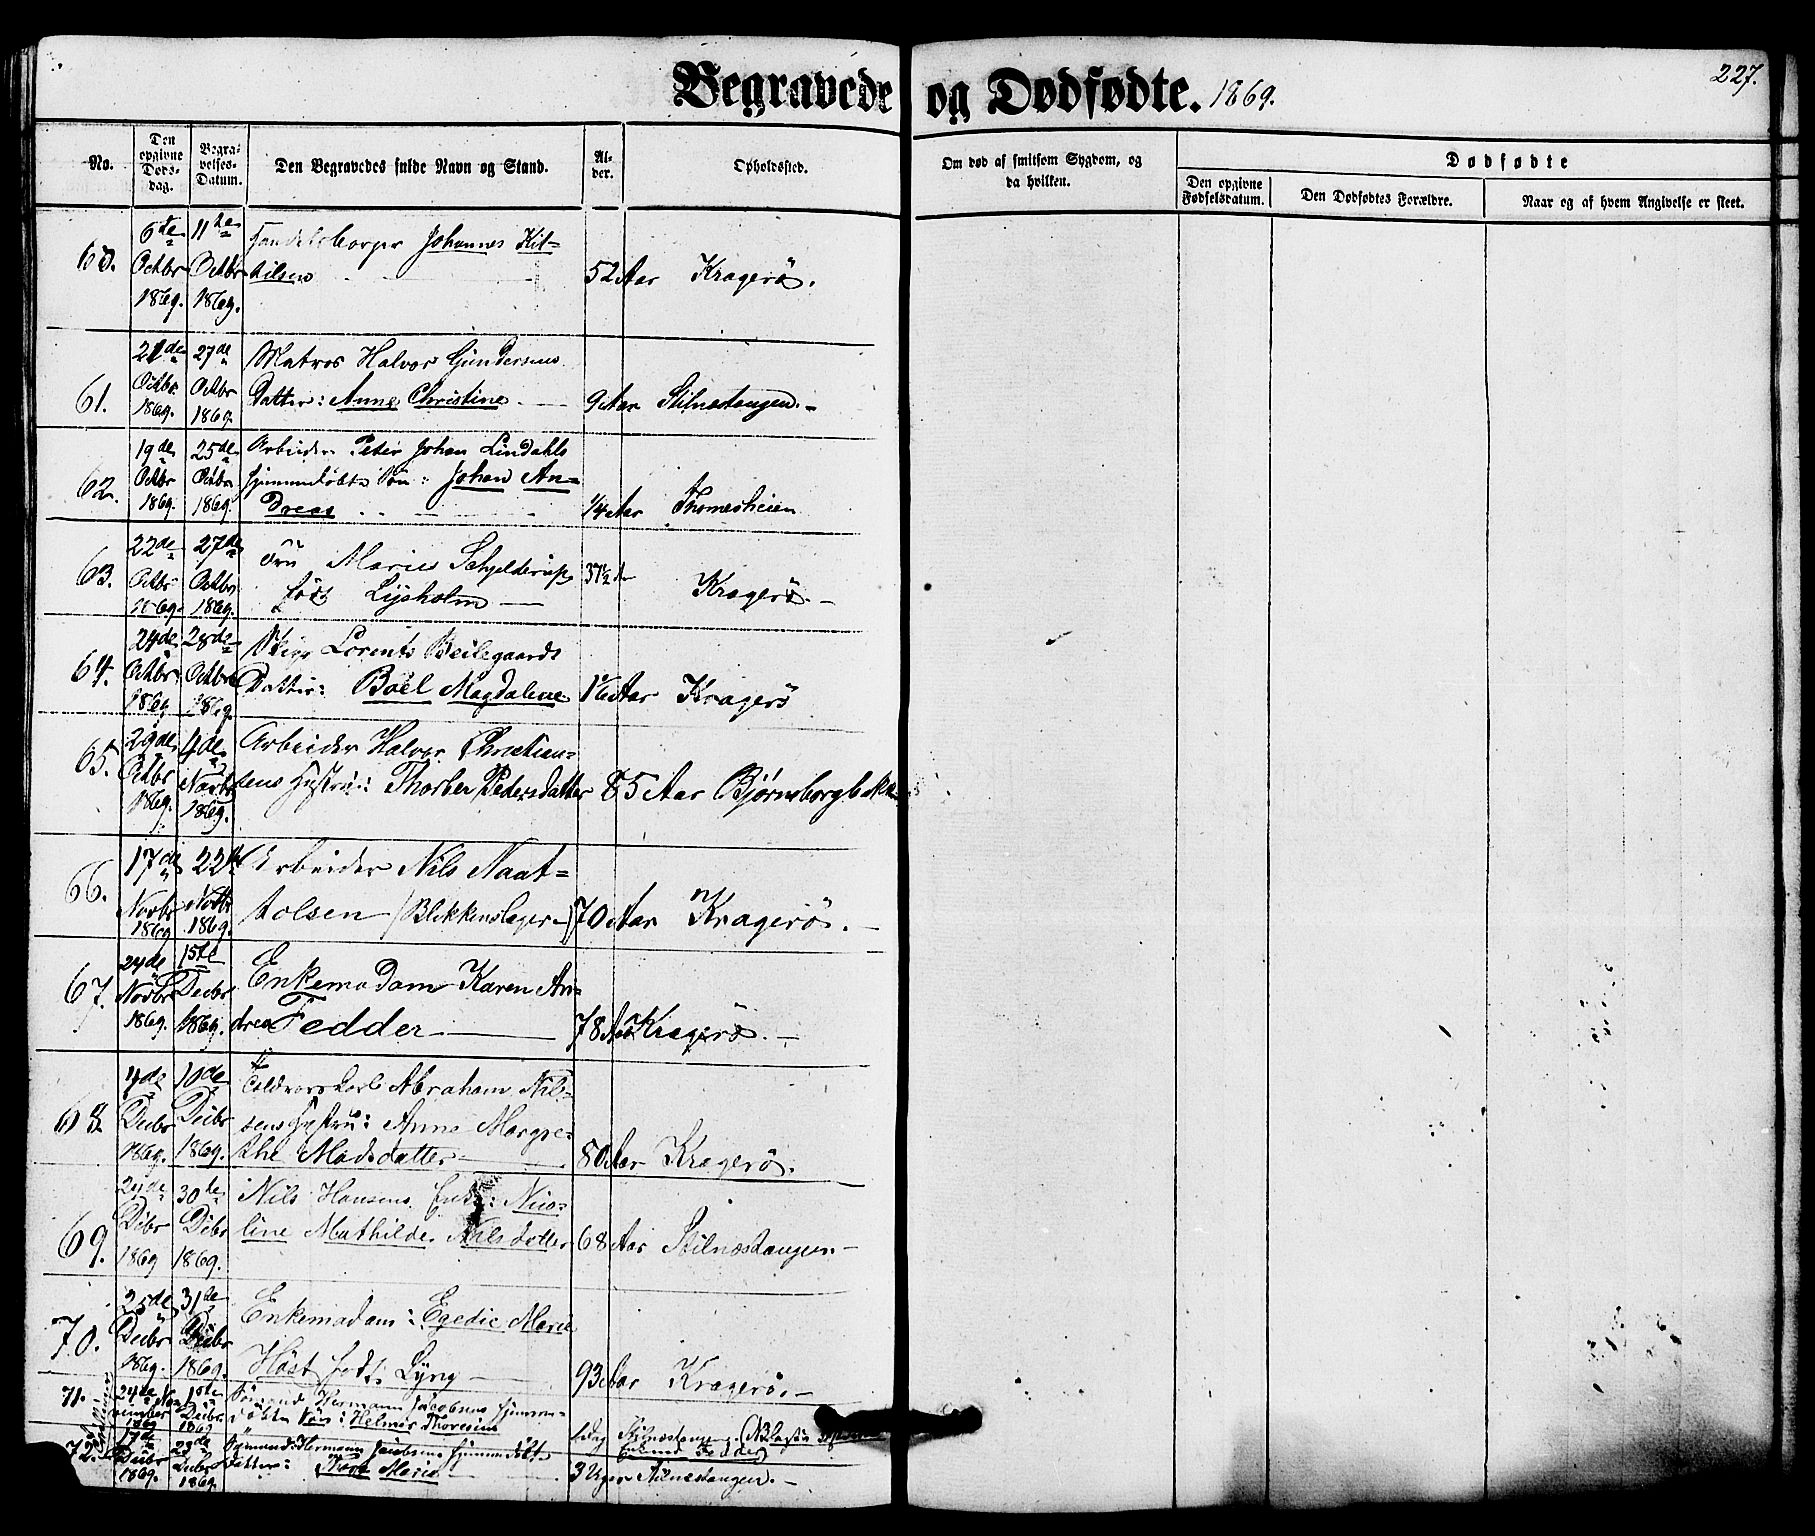 Begravede og Dødfødte. 1869.
227.
No.
Den opgivne Døds-dag.
Begra-velses-Datum.
Den Begravedes fulde Navn og Stand.
Al-der.
Opholdssted.
Om død af smitsom Sygdom, og da hvilken.
Dødfødte
Den opgivne Fødselsdatum.
Den Dødfødtes Forældre.
Naar og af hvem Angivelse er skeet.
6te Octbr 1869. 11te Octbr 1869. Handelsborger Johannes Kit=
tilsen 52 Aar Kragerö.
61. Octbr 1869. 27de Octbr 1869. Matros Halvor Gundersens
Datter: Anne Christine 9 Aar Stilnestangen.
62. 19de Octbr 1869. 25de Octbr 1869. Arbeider Peter Johan Lindahls
hjemmedöbte Sön: Johan An=
dreas 1/4 Aar Thomesheien
63. 22de Octbr 1869. 27de Octbr 1869. Fru Marie Schjelderup
född Lysholm 37 1/2 Kragerö.
64. 24de Octbr 1869 28de Octbr 1869. Lorents Beilegaards
Datter: Boel Magdalene Aar Kragerö
65. 29de Octbr 1869. 4de Novbr 1869. Arbeider Halvor Christian=
sens Hustru: Thorber Pedersdatter 85 Aar Björnsborgbakk
66. 17de Novbr 1869 22de Novbr 1869. Arbeider Nils Naat=
tolsen (Blikkenslager) 70 Aar Kragerö.
67. 24de Novbr 1869. 1ste Decbr 1869. Enkemadam Karen An=
drea Fedder 78 Aar Kragerö.
68. 4de Decbr 1869. 10de Decbr 1869. Abraham Nil=
sens Hustru: Anne Margre=
the Madsdatter 80 Aar Kragerö.
69. Decbr 1869 30te Decbr 1869. Nils Hansens Enke: Nico=
line Mathilde Nilsdatter 68 Aar Stilnestangen
70. 25de Decbr 1869. 31de Decbr 1869. Enkemadam: Egedie Marie
Höst född Lyng 93 Aar Kragerö.
71. 24de November 1869 1ste Decbr 1869 Hermann Jacobsens hjemme=
döbte Sön: Helmer Thoresius 1 dag Stilnestangen
72. 17de Decbr 1869. 23de Decbr 1869. Hermann Jacobsens hjemmedöbte
Datter: Thora Marie 3 Uger Stilnestangen.